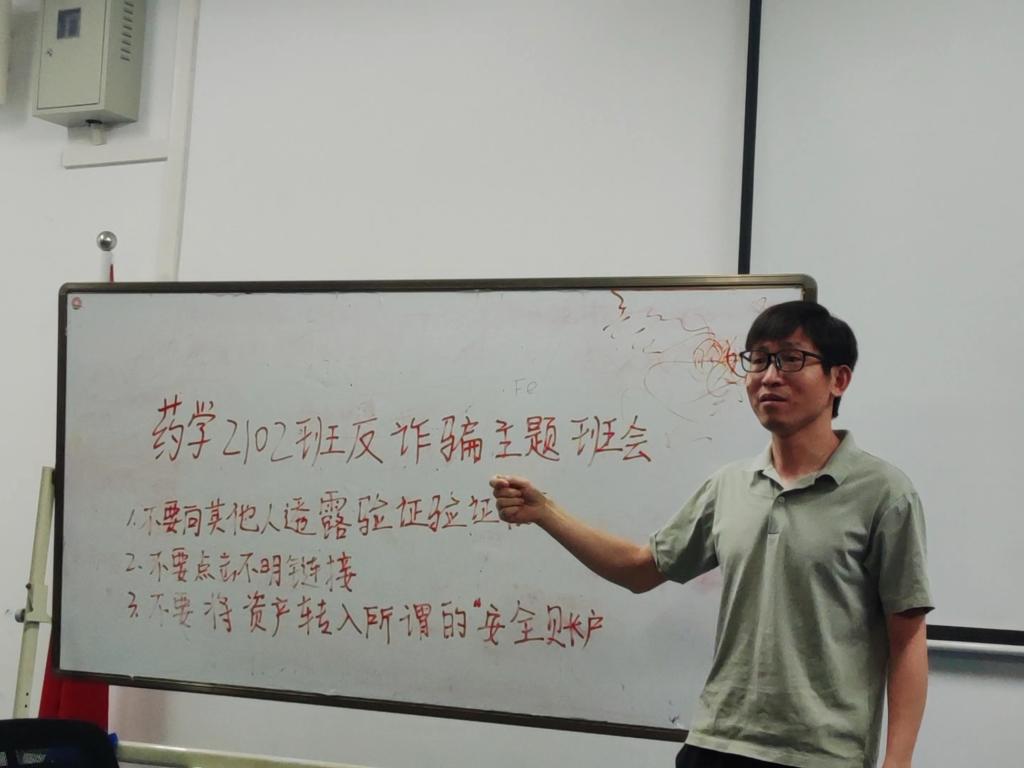 Fe
药学2102班反诈骗主题班会
1.不要向其他人透露验证验证
2.不要点击不明链接
3.不要将资产转入所谓的"安全账户